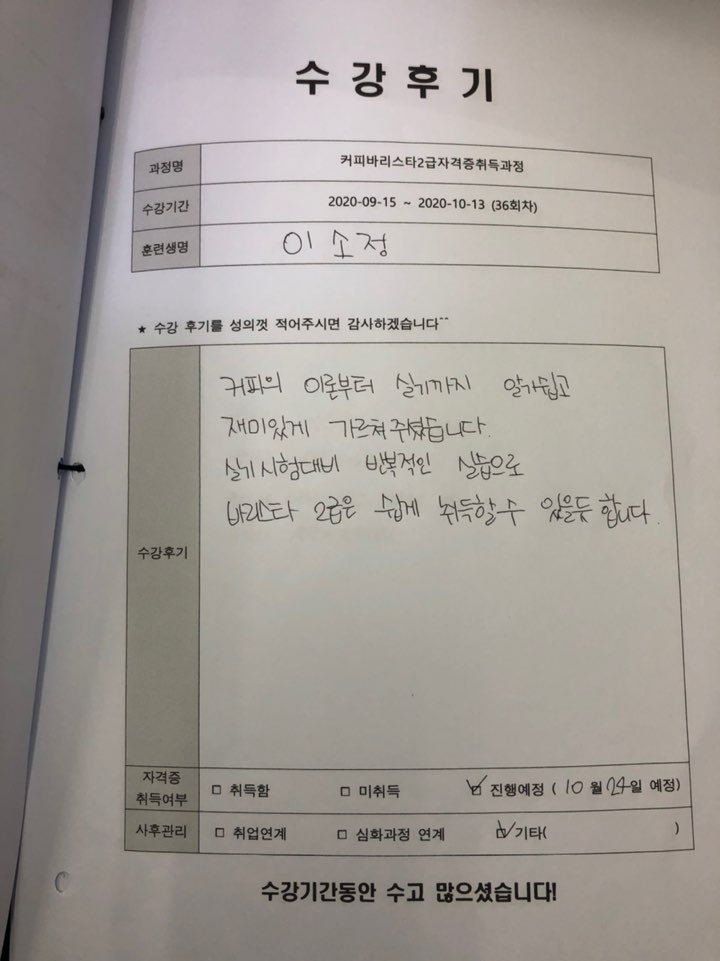 수강후기
과정명 커피바리스타2급자격증취득과정
수강기간 2020-09-15 ~ 2020-10-13 (36회차)
훈련생명 이소정
★ 수강 후기를 성의껏 적어주시면 감사하겠습니다^^
커피의 이론부터 실기까지 알기쉽고
재미있게 가르쳐주셨습니다.
실기시험대비 반복적인 실습으로
바리스타 2급은 쉽게 취득할수 있을듯 합니다.
수강후기
자격증 취득여부 □ 취득함 □ 미취득 ☑ 진행예정 ( 10 월 24일 예정)
사후관리 □ 취업연계 □ 심화과정 연계 ☑ 기타( )
수강기간동안 수고 많으셨습니다!